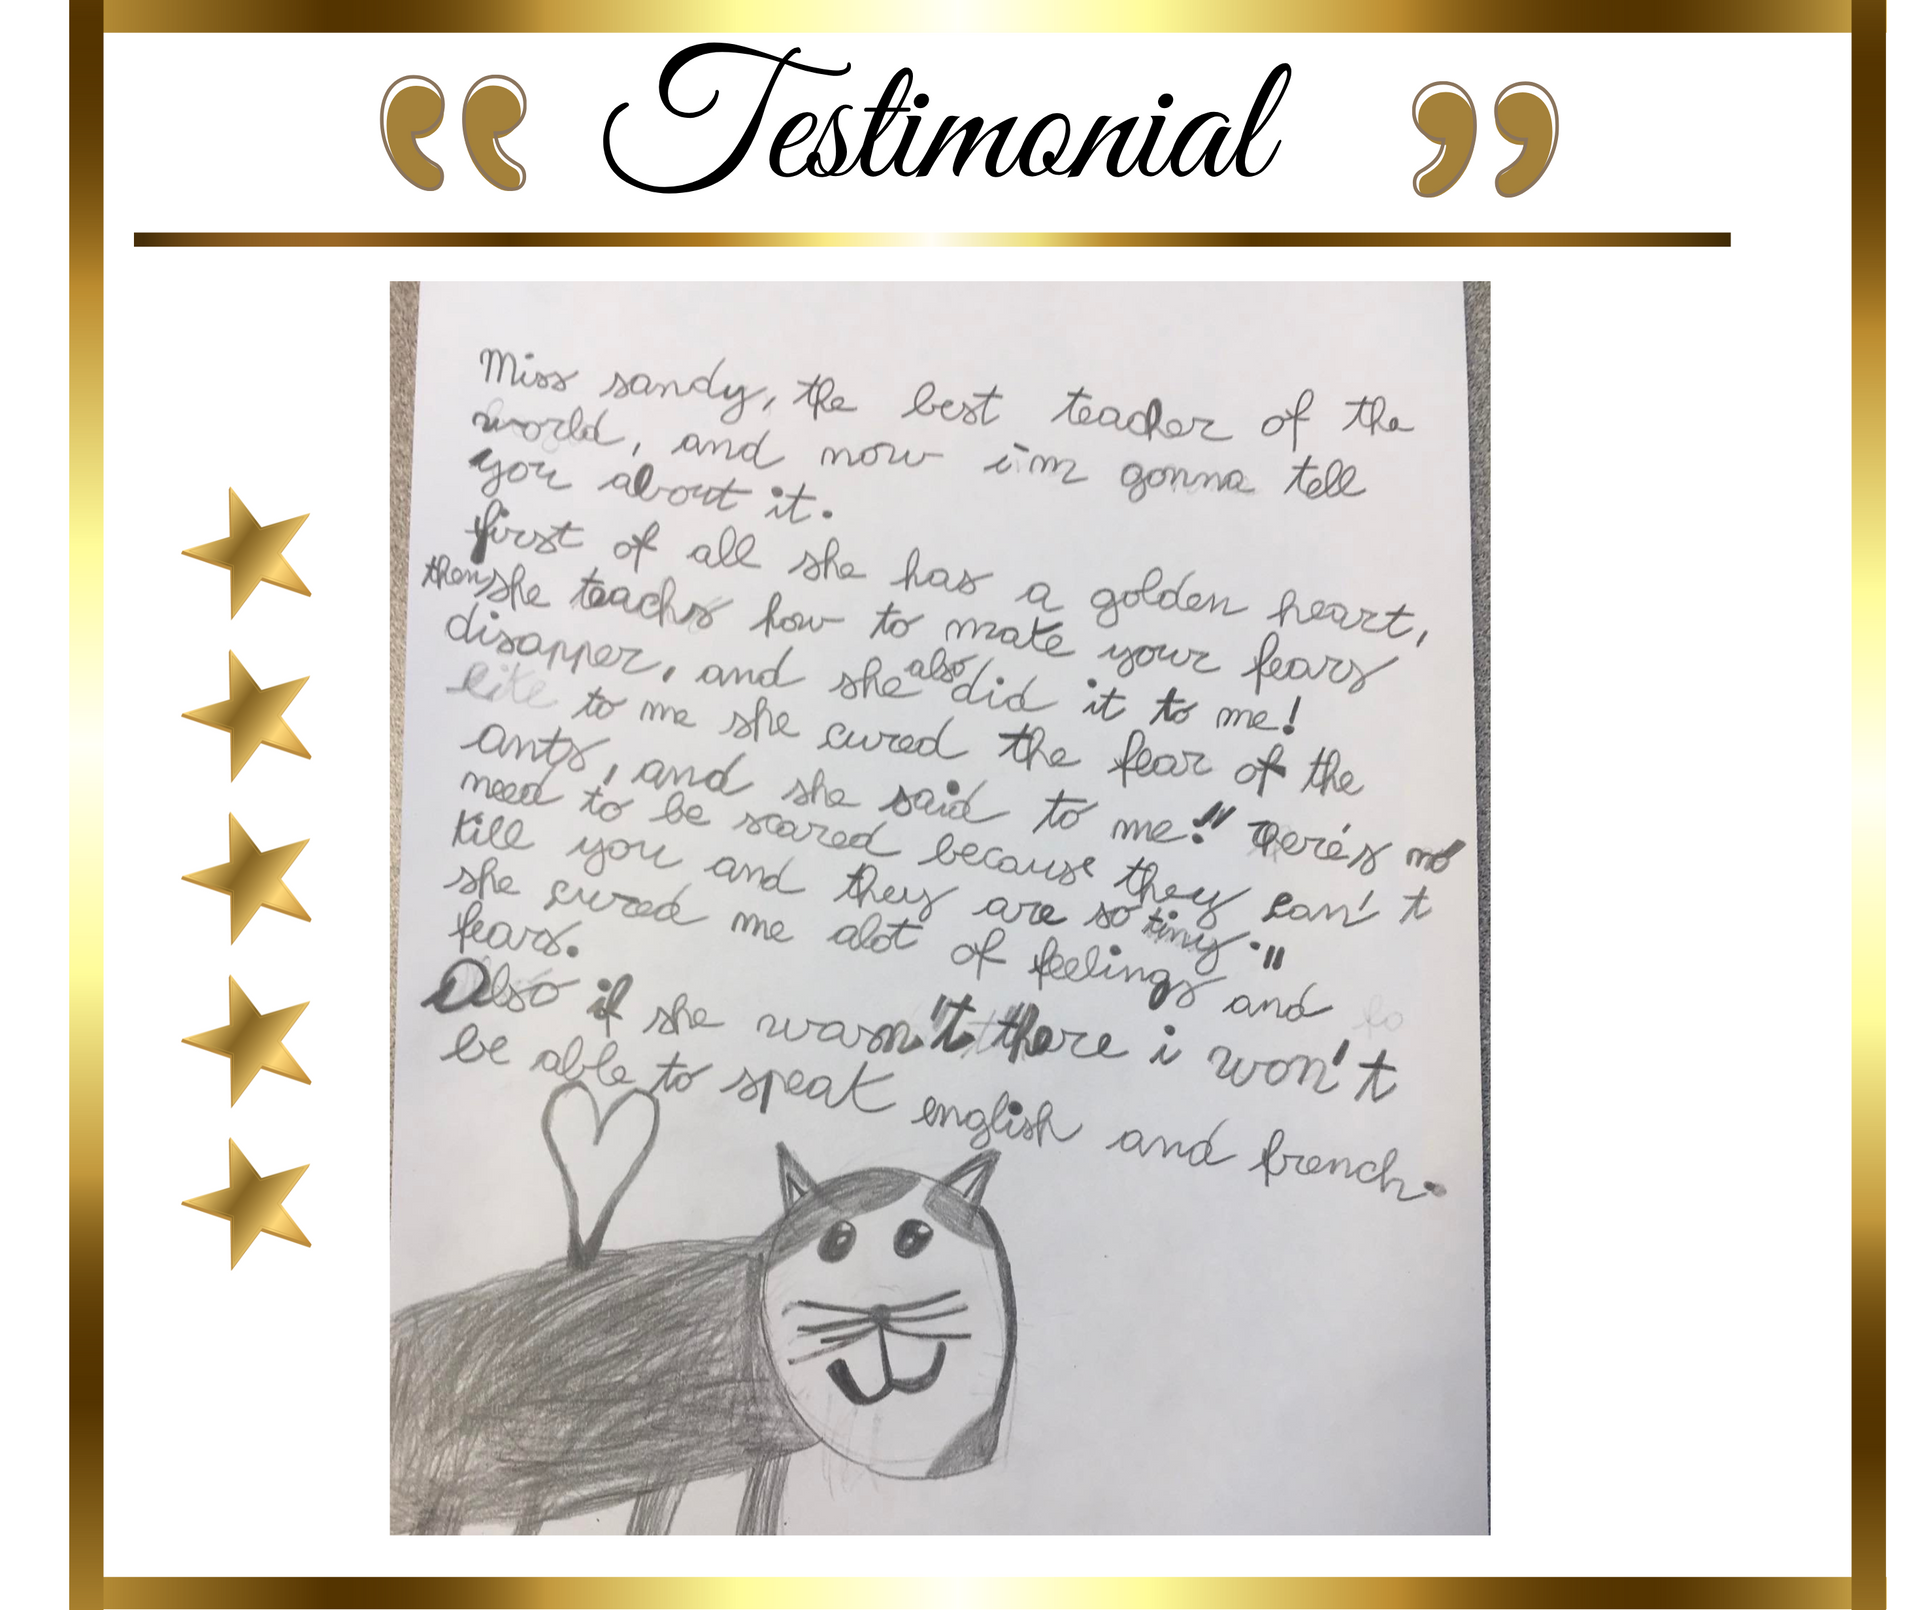 Testimonial
Miss sandy, the best teacher of the
world, and now i'm gonna tell
you about it.
first of all she has a golden heart,
then she teachs how to make your fears
disapper, and she also did it to me!
like to me she cured the fear of the
ants, and she said to me!" there's no
need to be scared because they can't
kill you and they are so tiny."
she cured me alot of feelings and
fears.
Also if she wasn't there i won't
be able to speak english and french.